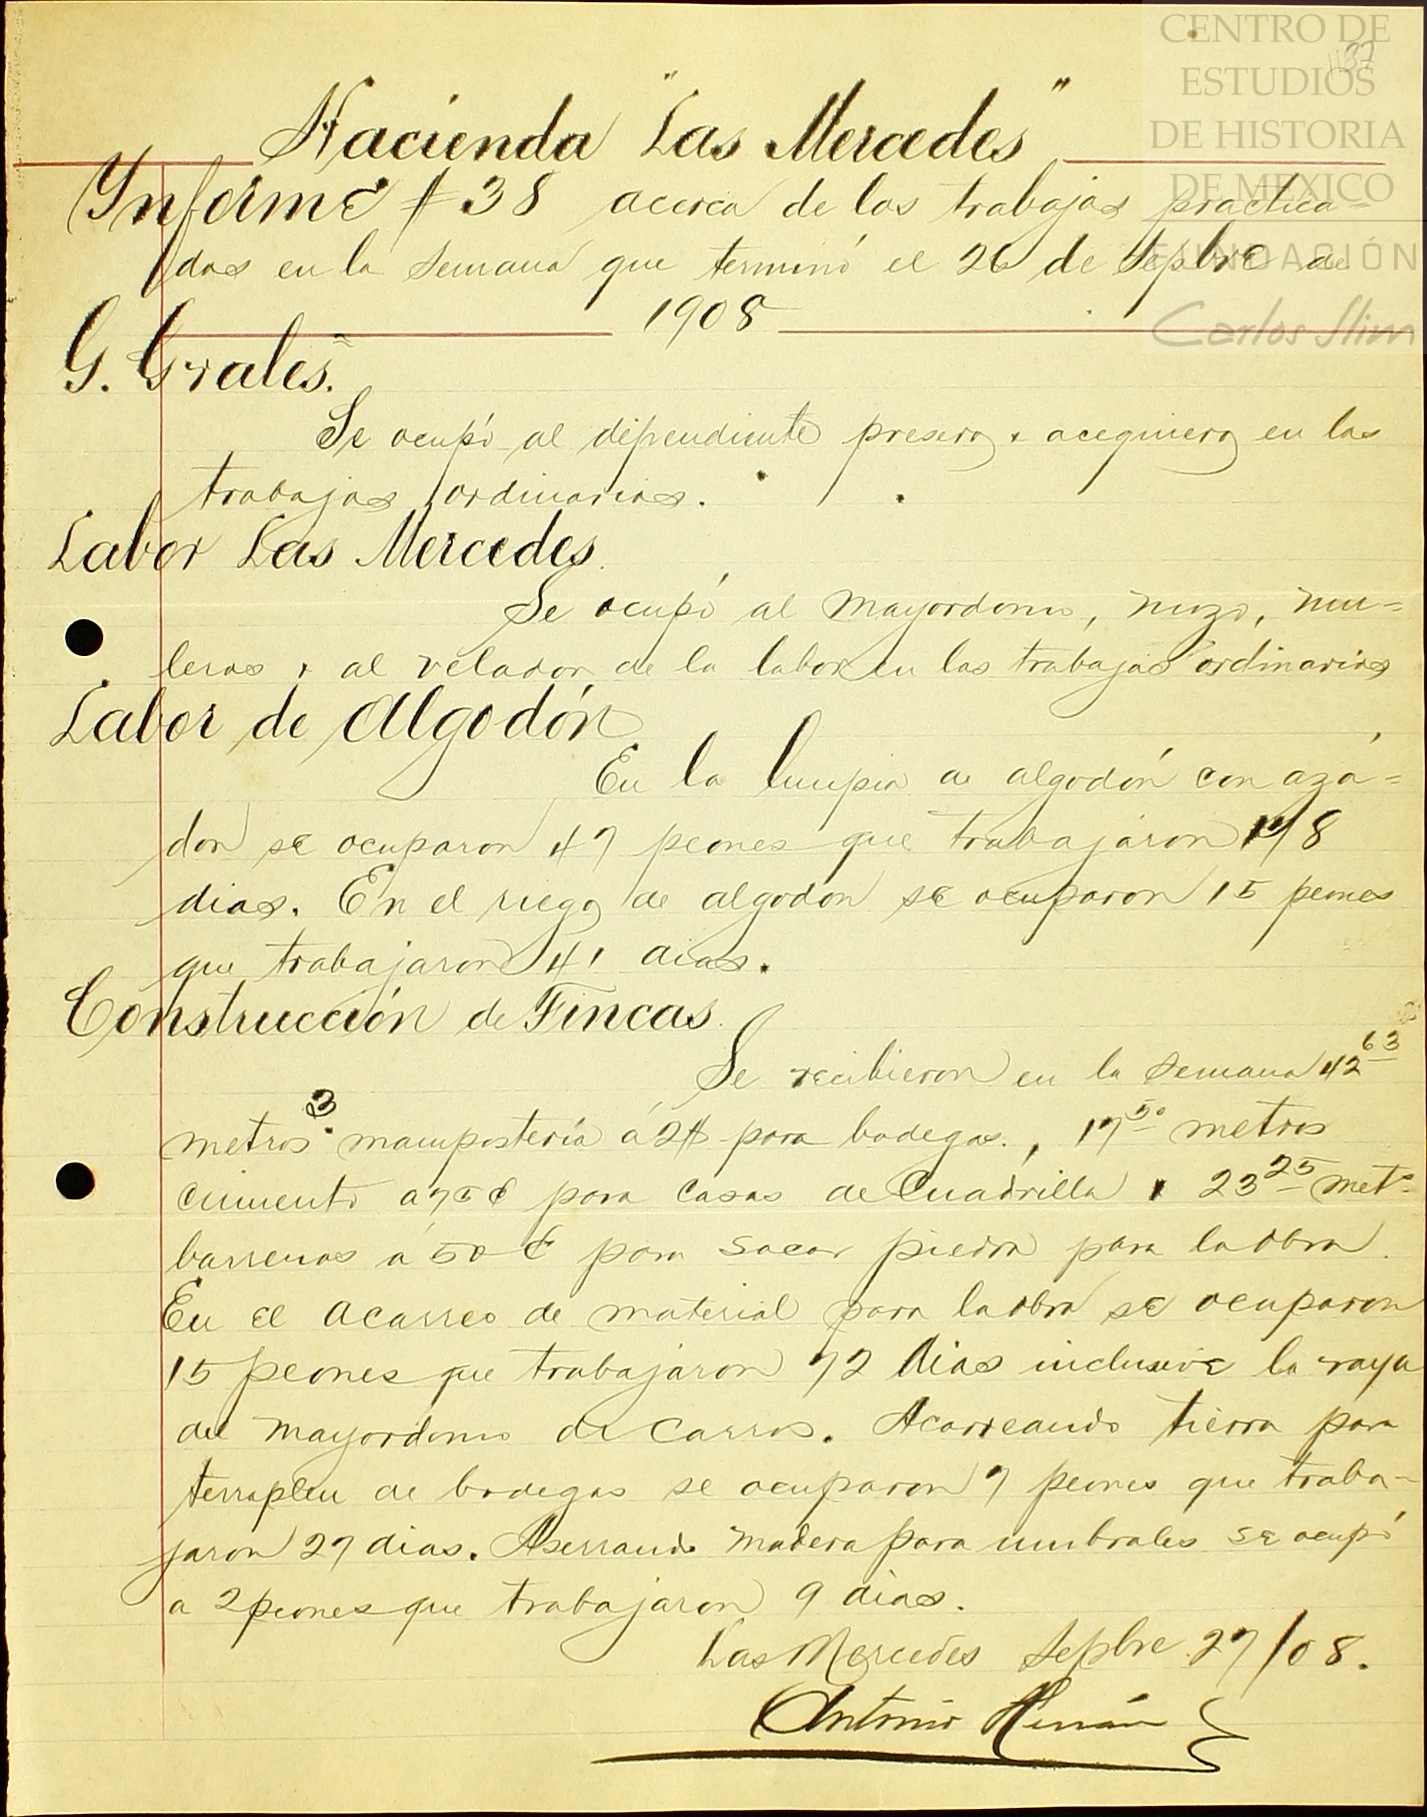 CENTRO DE
ESTUDIOS
DE HISTORIA
DE MEXICO
FUNDACIÓN
Carlos Slim
137
Hacienda "Las Mercedes"
Informe # 38 acerca de los trabajos practica-
dos en la semana que terminó el 26 de Sepbre de
1908
G. Grales.
Se ocupó al dependiente presero y acequiero en los
trabajos ordinarios.
Labor Las Mercedes.
Se ocupó al Mayordomo, mozo, mu=
leros y al velador de la labor en los trabajos ordinarios
Labor de Algodón
En la limpia de algodón con aza=
dón se ocuparon 47 peones que trabajaron 178
dias. En el riego de algodon se ocuparon 15 peones
que trabajaron 41 dias.
Construcción de Fincas.
Se recibieron en la semana 42 63
metros 3 mampostería á 2$ para bodegas., 17 50 metros
cimiento a 75 ¢ para casas de Cuadrilla y 23 25 mets
barrenos a 50 ¢ para sacar piedra para la obra.
En el acarreo de material para la obra se ocuparon
15 peones que trabajaron 72 dias inclusive la raya
del mayordomo de carros. Acarreando tierra para
terraplen de bodegas se ocuparon 7 peones que traba-
jaron 27 dias. Aserrando madera para umbrales se ocupó
a 2 peones que trabajaron 9 dias.
Las Mercedes Sepbre 27/08.
Antonio